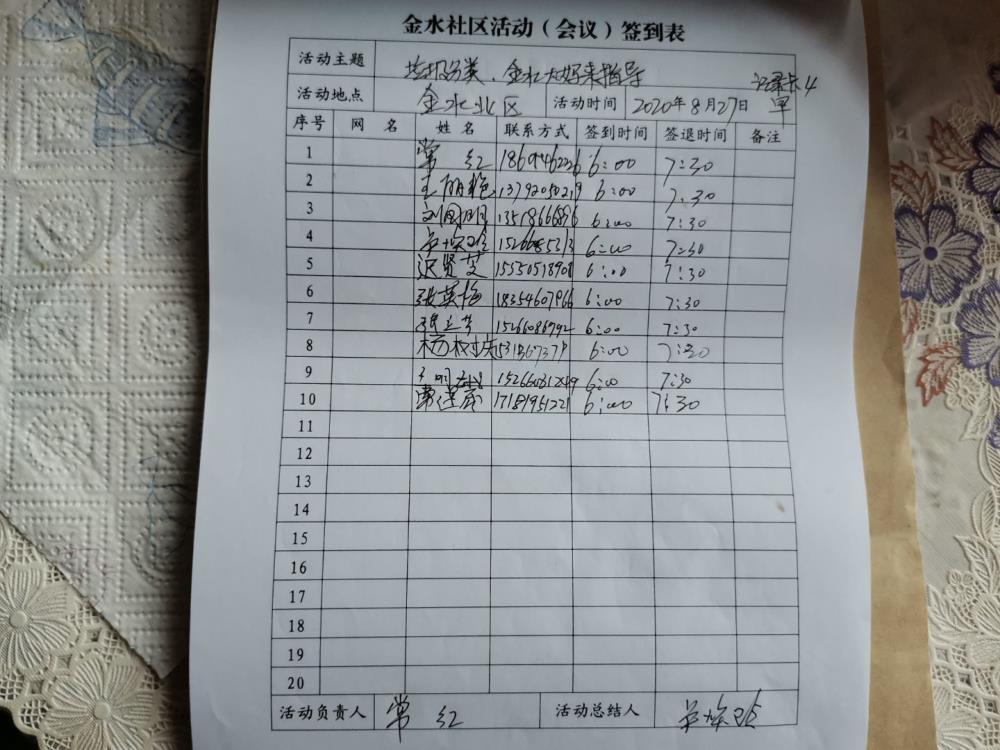 金水社区活动（会议）签到表
活动主题 垃圾分类、金水大好来指导
活动地点 金水北区 活动时间 2020年8月27日
序号 网名 姓名 联系方式 签到时间 签退时间 备注
1 常红 18694622 6:00 7:30
2 王丽艳 13792050219 6:00 7:30
3 刘国明 6:00 7:30
4 6:00 7:30
5 迟贤芝 6:00 7:30
6 张英梅 18354607966 6:00 7:30
7 15266086792 6:00 7:30
8 杨树 6:00 7:30
9 15266081249 6:00 7:30
10 17181951221 6:00 7:30
11
12
13
14
15
16
17
18
19
20
活动负责人 常红 活动总结人